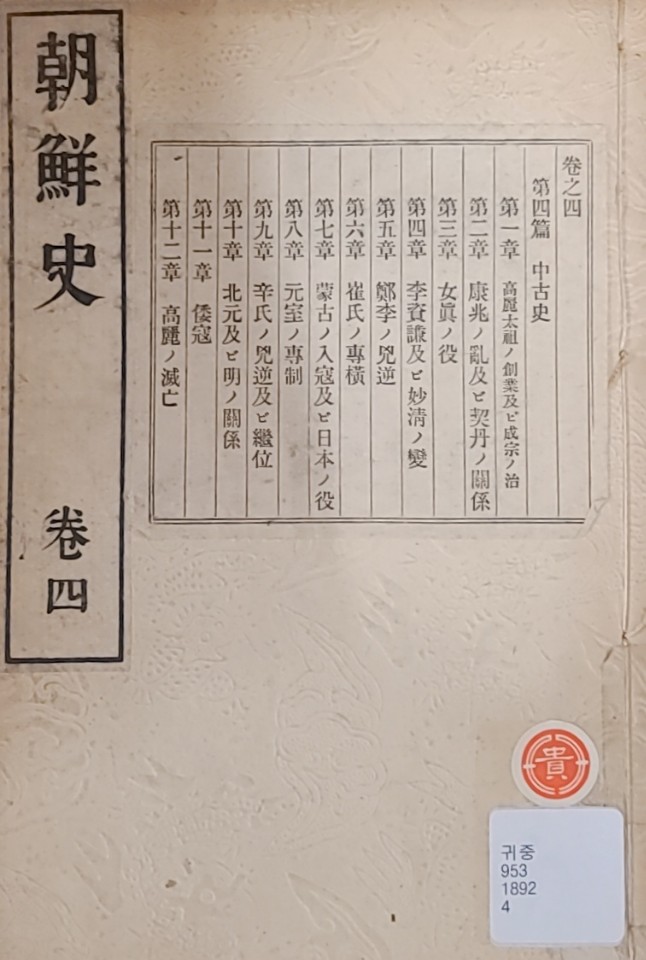 朝鮮史 卷四
卷之四
第四篇 中古史
第一章 高麗太祖ノ創業及ビ成宗ノ治
第二章 康兆ノ亂及ビ契丹ノ關係
第三章 女眞ノ役
第四章 李資謙及ビ妙淸ノ變
第五章 鄭李ノ兇逆
第六章 崔氏ノ專橫
第七章 蒙古ノ入寇及ビ日本ノ役
第八章 元室ノ專制
第九章 辛氏ノ兇逆及ビ繼位
第十章 北元及ビ明ノ關係
第十一章 倭寇
第十二章 高麗ノ滅亡
貴
귀중
953
1892
4